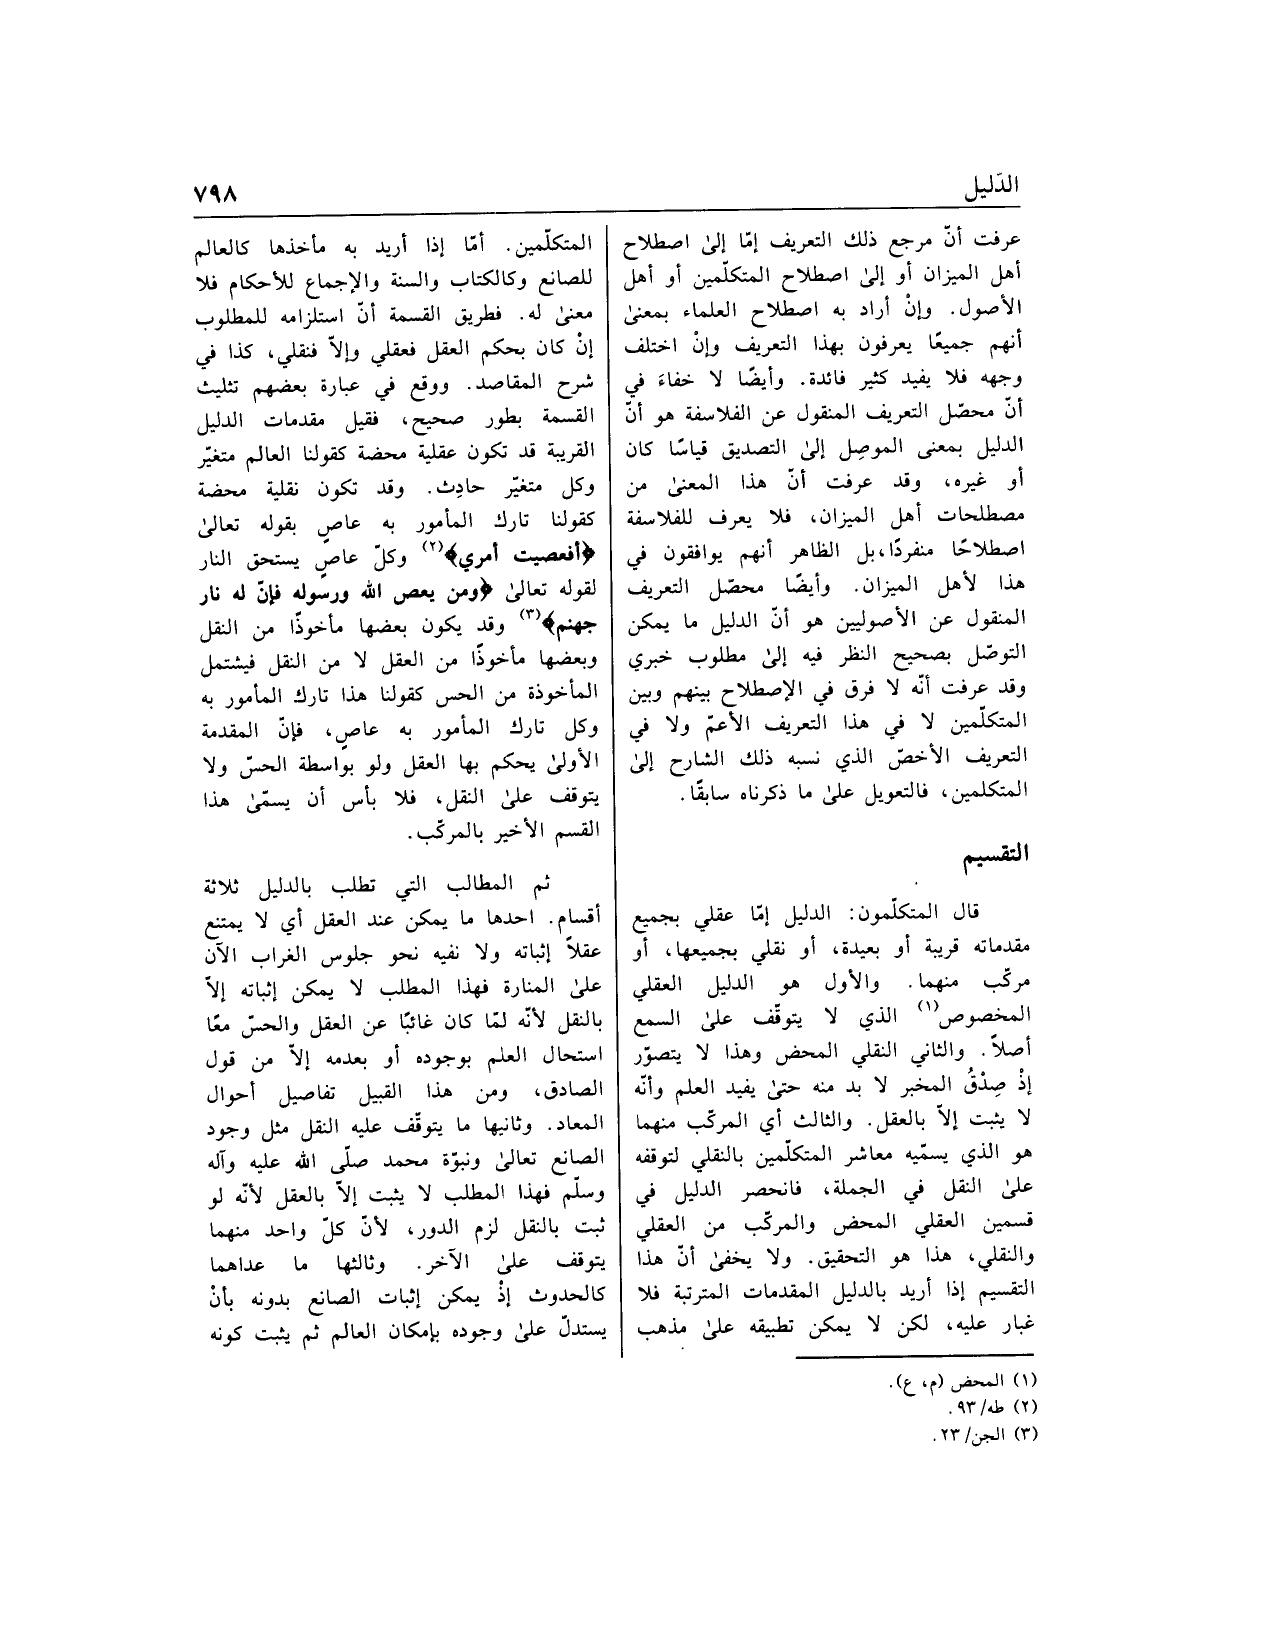 الدّليل
٧٩٨
عرفت أنّ مرجع ذلك التعريف إمّا إلىٰ اصطلاح
أهل الميزان أو إلىٰ اصطلاح المتكلّمين أو أهل
الأصول. وإنْ أراد به اصطلاح العلماء بمعنىٰ
أنهم جميعًا يعرفون بهذا التعريف وإنْ اختلف
وجهه فلا يفيد كثير فائدة. وأيضًا لا خفاءَ في
أنّ محصّل التعريف المنقول عن الفلاسفة هو أنّ
الدليل بمعنى الموصِل إلىٰ التصديق قياسًا كان
أو غيره، وقد عرفت أنّ هذا المعنىٰ من
مصطلحات أهل الميزان، فلا يعرف للفلاسفة
اصطلاحًا منفردًا،بل الظاهر أنهم يوافقون في
هذا لأهل الميزان. وأيضًا محصّل التعريف
المنقول عن الأصوليين هو أنّ الدليل ما يمكن
التوصّل بصحيح النظر فيه إلىٰ مطلوب خبري
وقد عرفت أنّه لا فرق في الإصطلاح بينهم وبين
المتكلّمين لا في هذا التعريف الأعمّ ولا في
التعريف الأخصّ الذي نسبه ذلك الشارح إلىٰ
المتكلمين، فالتعويل علىٰ ما ذكرناه سابقًا.
التقسيم
قال المتكلّمون: الدليل إمّا عقلي بجميع
مقدماته قريبة أو بعيدة، أو نقلي بجميعها، أو
مركّب منهما. والأول هو الدليل العقلي
المخصوص(١) الذي لا يتوقّف علىٰ السمع
أصلاً. والثاني النقلي المحض وهذا لا يتصوّر
إذْ صِدْقُ المخبر لا بد منه حتىٰ يفيد العلم وأنّه
لا يثبت إلاّ بالعقل. والثالث أي المركّب منهما
هو الذي يسمّيه معاشر المتكلّمين بالنقلي لتوقفه
علىٰ النقل في الجملة، فانحصر الدليل في
قسمين العقلي المحض والمركّب من العقلي
والنقلي، هذا هو التحقيق. ولا يخفىٰ أنّ هذا
التقسيم إذا أريد بالدليل المقدمات المترتبة فلا
غبار عليه، لكن لا يمكن تطبيقه علىٰ مذهب
المتكلّمين. أمّا إذا أريد به مأخذها كالعالم
للصانع وكالكتاب والسنة والإجماع للأحكام فلا
معنىٰ له. فطريق القسمة أنّ استلزامه للمطلوب
إنْ كان بحكم العقل فعقلي وإلاّ فنقلي، كذا في
شرح المقاصد. ووقع في عبارة بعضهم تثليث
القسمة بطور صحيح، فقيل مقدمات الدليل
القريبة قد تكون عقلية محضة كقولنا العالم متغيّر
وكل متغيّر حادِث. وقد تكون نقلية محضة
كقولنا تارك المأمور به عاصٍ بقوله تعالىٰ
﴿أفعصيت أمري﴾(٢) وكلّ عاصٍ يستحق النار
لقوله تعالىٰ ﴿ومن يعص الله ورسوله فإنّ له نار
جهنم﴾(٣) وقد يكون بعضها مأخوذًا من النقل
وبعضها مأخوذًا من العقل لا من النقل فيشتمل
المأخوذة من الحس كقولنا هذا تارك المأمور به
وكل تارك المأمور به عاصٍ، فإنّ المقدمة
الأولىٰ يحكم بها العقل ولو بواسطة الحسّ ولا
يتوقف علىٰ النقل، فلا بأس أن يسمّىٰ هذا
القسم الأخير بالمركّب.
ثم المطالب التي تطلب بالدليل ثلاثة
أقسام. احدها ما يمكن عند العقل أي لا يمتنع
عقلاً إثباته ولا نفيه نحو جلوس الغراب الآن
علىٰ المنارة فهذا المطلب لا يمكن إثباته إلاّ
بالنقل لأنّه لمّا كان غائبًا عن العقل والحسّ معًا
استحال العلم بوجوده أو بعدمه إلاّ من قول
الصادق، ومن هذا القبيل تفاصيل أحوال
المعاد. وثانيها ما يتوقّف عليه النقل مثل وجود
الصانع تعالىٰ ونبوّة محمد صلّى الله عليه وآله
وسلّم فهذا المطلب لا يثبت إلاّ بالعقل لأنّه لو
ثبت بالنقل لزم الدور، لأنّ كلّ واحد منهما
يتوقف علىٰ الآخر. وثالثها ما عداهما
كالحدوث إذْ يمكن إثبات الصانع بدونه بأنْ
يستدلّ علىٰ وجوده بإمكان العالم ثم يثبت كونه
(١) المحض (م، ع).
(٢) طه/ ٩٣.
(٣) الجن/ ٢٣.